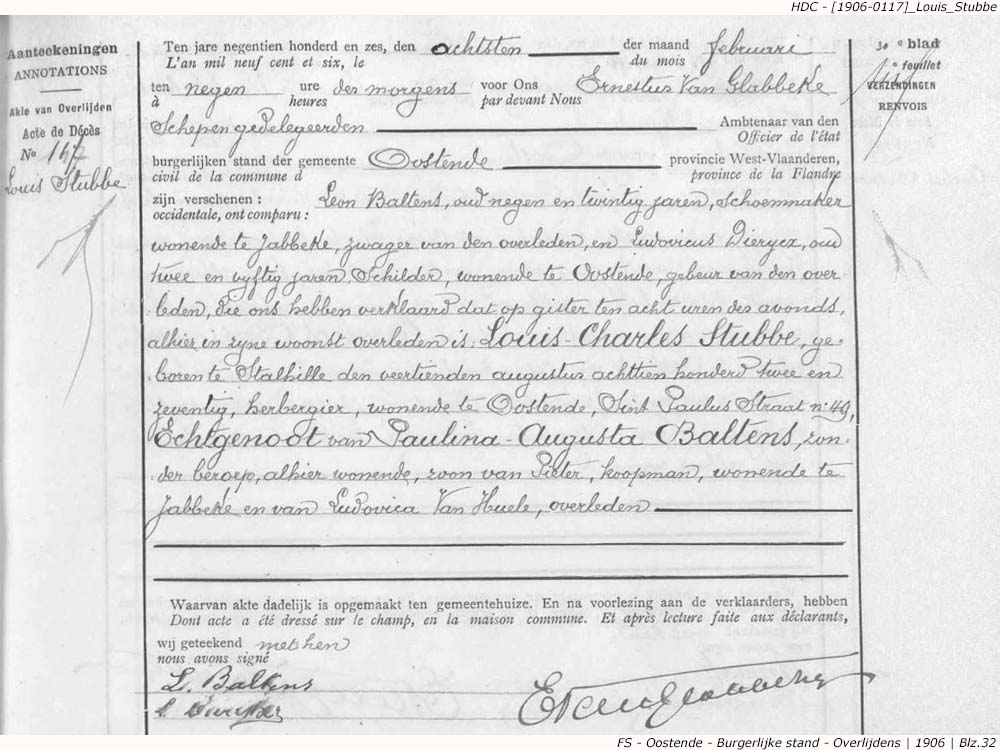 HDC - [1906-0117]_Louis_Stubbe
Aanteekeningen
ANNOTATIONS
Akte van Overlijden
Acte de Décès
No 147
Louis Stubbe
Ten jare negentien honderd en zes, den achtsten der maand februari
L'an mil neuf cent et six, le du mois
ten negen ure des morgens voor Ons Ernestus Van Glabbeke
à heures par devant Nous
Schepen gedelegeerden Ambtenaar van den
Officier de l'état
burgerlijken stand der gemeente Oostende provincie West-Vlaanderen,
civil de la commune d province de la Flandre
zijn verschenen : Leon Baltens, oud negen en twintig jaren, Schoenmaker
occidentale, ont comparu :
wonende te Jabbeke, zwager van den overleden, en Ludovicus Dierycx, oud
twee en vyftig jaren, Schilder, wonende te Oostende, gebeur van den over
leden, die ons hebben verklaard dat op gister ten acht uren des avonds,
alhier in zyne woonst overleden is: Louis-Charles Stubbe, ge-
boren te Stalhille den veertienden augustus achttien honderd twee en
zeventig, herbergier, wonende te Oostende, Sint Paulus Straat no 49,
Echtgenoot van Paulina-Augusta Baltens, zon-
der beroep, alhier wonende, zoon van Pieter, koopman, wonende te
Jabbeke en van Ludovica Van Huele, overleden
Waarvan akte dadelijk is opgemaakt ten gemeentehuize. En na voorlezing aan de verklaarders, hebben
Dont acte a été dressé sur le champ, en la maison commune. Et après lecture faite aux déclarants,
wij geteekend met hen
nous avons signé
L. Baltens
EVanGlabbeke
e blad
e feuillet
VERZENDINGEN
RENVOIS
FS - Oostende - Burgerlijke stand - Overlijdens | 1906 | Blz.32